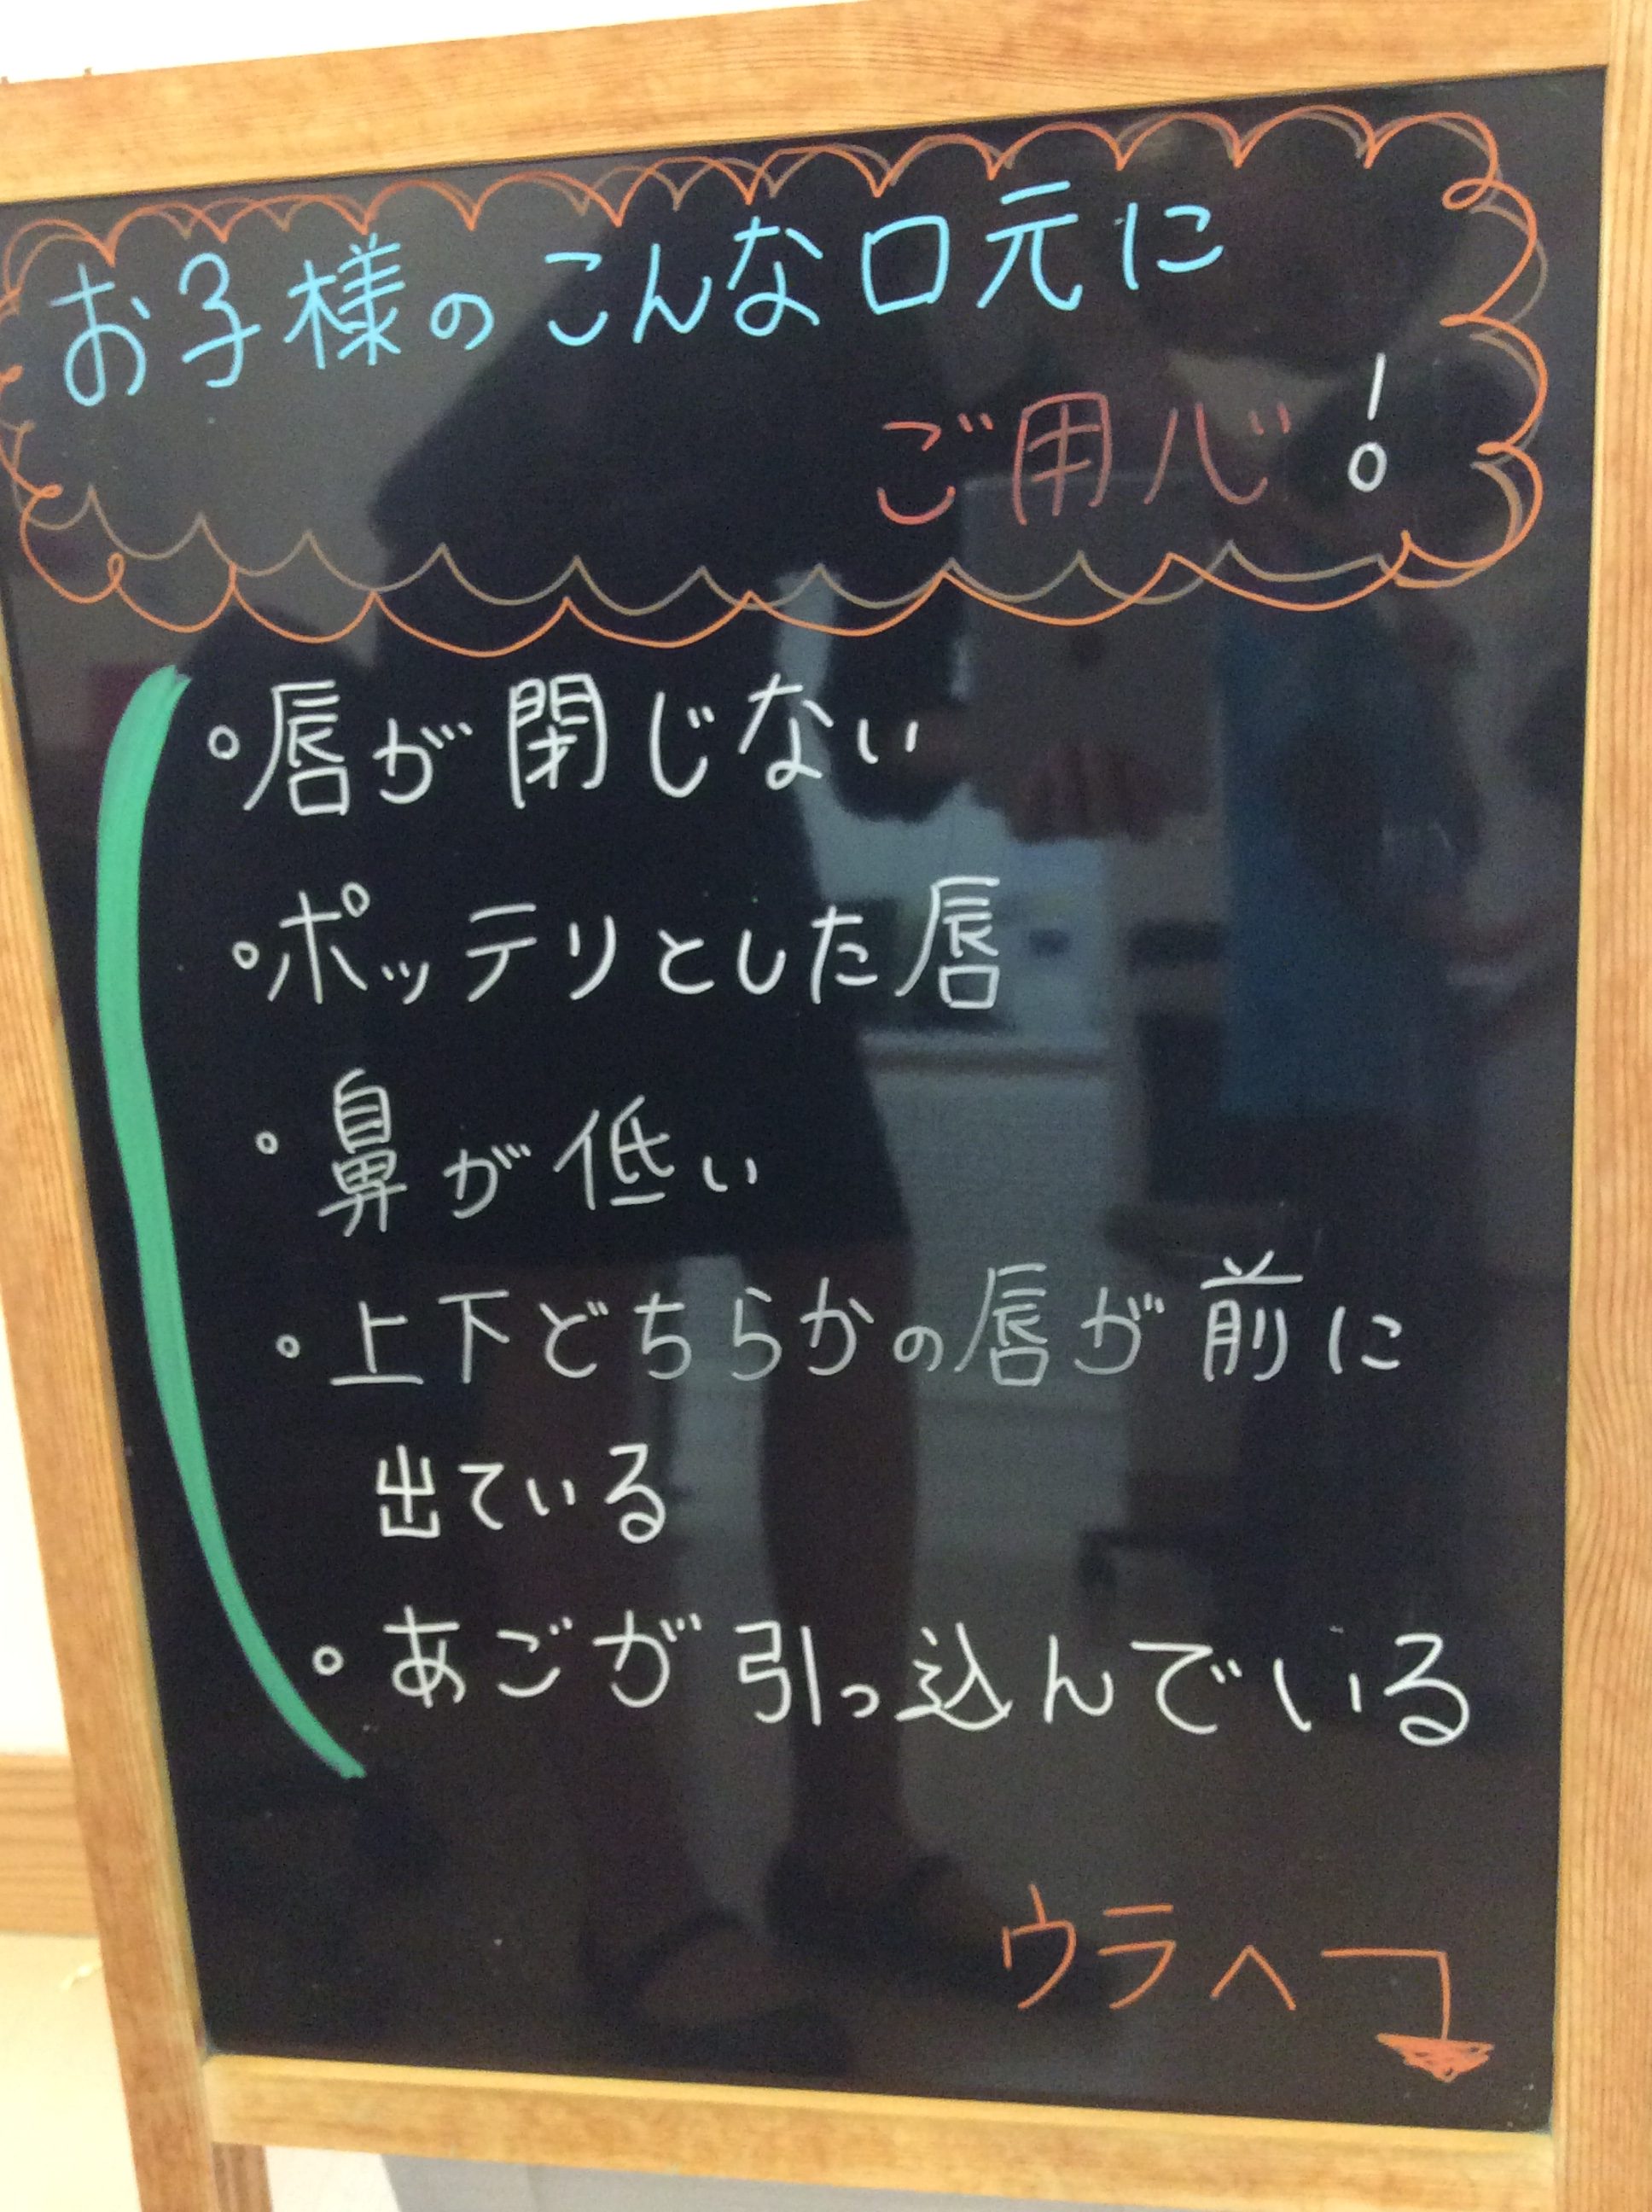 お子様のこんな口元に
ご用心!
・唇が閉じない
・ポッテリとした唇
・鼻が低い
・上下どちらかの唇が前に
出ている
・あごが引っ込んでいる
ウラへ